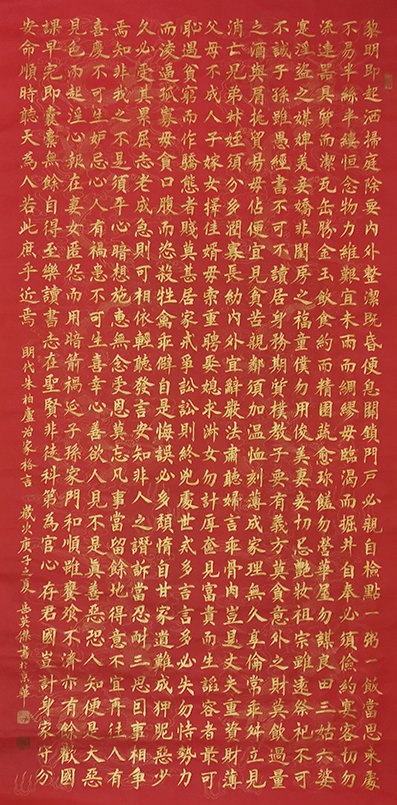 黎明即起洒掃庭除要內外整潔既昏便息關鎖門戶必親自檢點一粥一飯當思來處
不易半絲半縷恒念物力維艱宜未雨而綢繆毋臨渴而掘井自奉必須儉約宴客切勿
流連器具質而潔瓦缶勝金玉飲食約而精園蔬愈珍饈勿營華屋勿謀良田三姑六婆
寔淫盜之媒婢美妾嬌非閨房之福童僕勿用俊美妻妾切忌艷妝祖宗雖遠祭祀不可
不誠子孫雖愚經書不可不讀居身務期質樸教子要有義方莫貪意外之財莫飲過量
之酒與肩挑貿易毋佔便宜見貧苦親鄰須加溫恤刻薄成家理無久享倫常乖舛立見
消亡兄弟叔姪須分多潤寡長幼內外宜辭嚴法肅聽婦言乖骨肉豈是丈夫重資財薄
父母不成人子嫁女擇佳婿毋索重聘娶媳求淑女勿計厚奩見富貴而生諂容者最可
恥遇貧窮而作驕態者賤莫甚居家戒爭訟訟則終凶處世戒多言言多必失勿恃勢力
而凌逼孤寡毋貪口腹而恣殺牲禽乖僻自是悔誤必多頹惰自甘家道難成狎昵惡少
久必受其累屈志老成急則可相依輕聽發言安知非人之譖訴當忍耐三思因事相爭
焉知非我之不是須平心暗想施惠無念受恩莫忘凡事當留餘地得意不宜再往人有
喜慶不可生妒忌心人有禍患不可生喜幸心善欲人見不是真善惡恐人知便是大惡
見色而起淫心報在妻女匿怨而用暗箭禍延子孫家門和順雖饔飧不濟亦有餘歡國
課早完即囊橐無餘自得至樂讀書志在聖賢非徒科第為官心存君國豈計身家守分
安命順時聽天為人若此庶乎近焉 明代朱柏廬治家格言 歲次庚子之夏 岳英傑書於京華